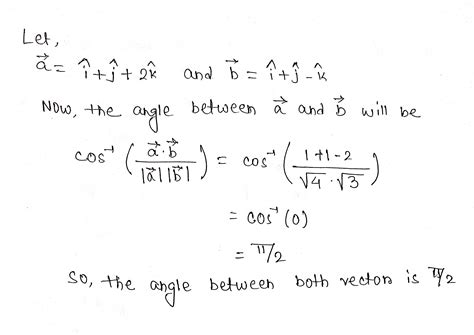 Let,
a⃗ = î + ĵ + 2k̂ and b⃗ = î + ĵ - k̂
Now, the angle between a⃗ and b⃗ will be
cos⁻¹ (a⃗·b⃗ / |a⃗||b⃗|) = cos⁻¹ (1+1-2 / √4·√3)
= cos⁻¹ (0)
= π/2
So, the angle between both vectors is π/2